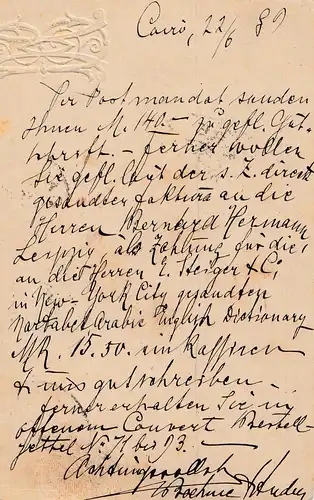 Cairo, 22/6 89
Per Postmandat senden
Ihnen M. 140.— zu gefl. Gut-
schrift. — ferner wollen
Sie gefl. laut der s. Z. direkt
gesandten faktura an die
Herren Bernard Hermann
Leipzig als Zahlung für die
an die Herren E. Steiger & Co,
in New-York City gesandten
Wartabet Arabic English Dictionary
MK. 15.50. einkassiren
& uns gutschreiben —
ferner erhalten Sie in
offenem Couvert Bestell-
zettel No 71 bis 93. —
Achtungsvollst
Boehme & Anderer